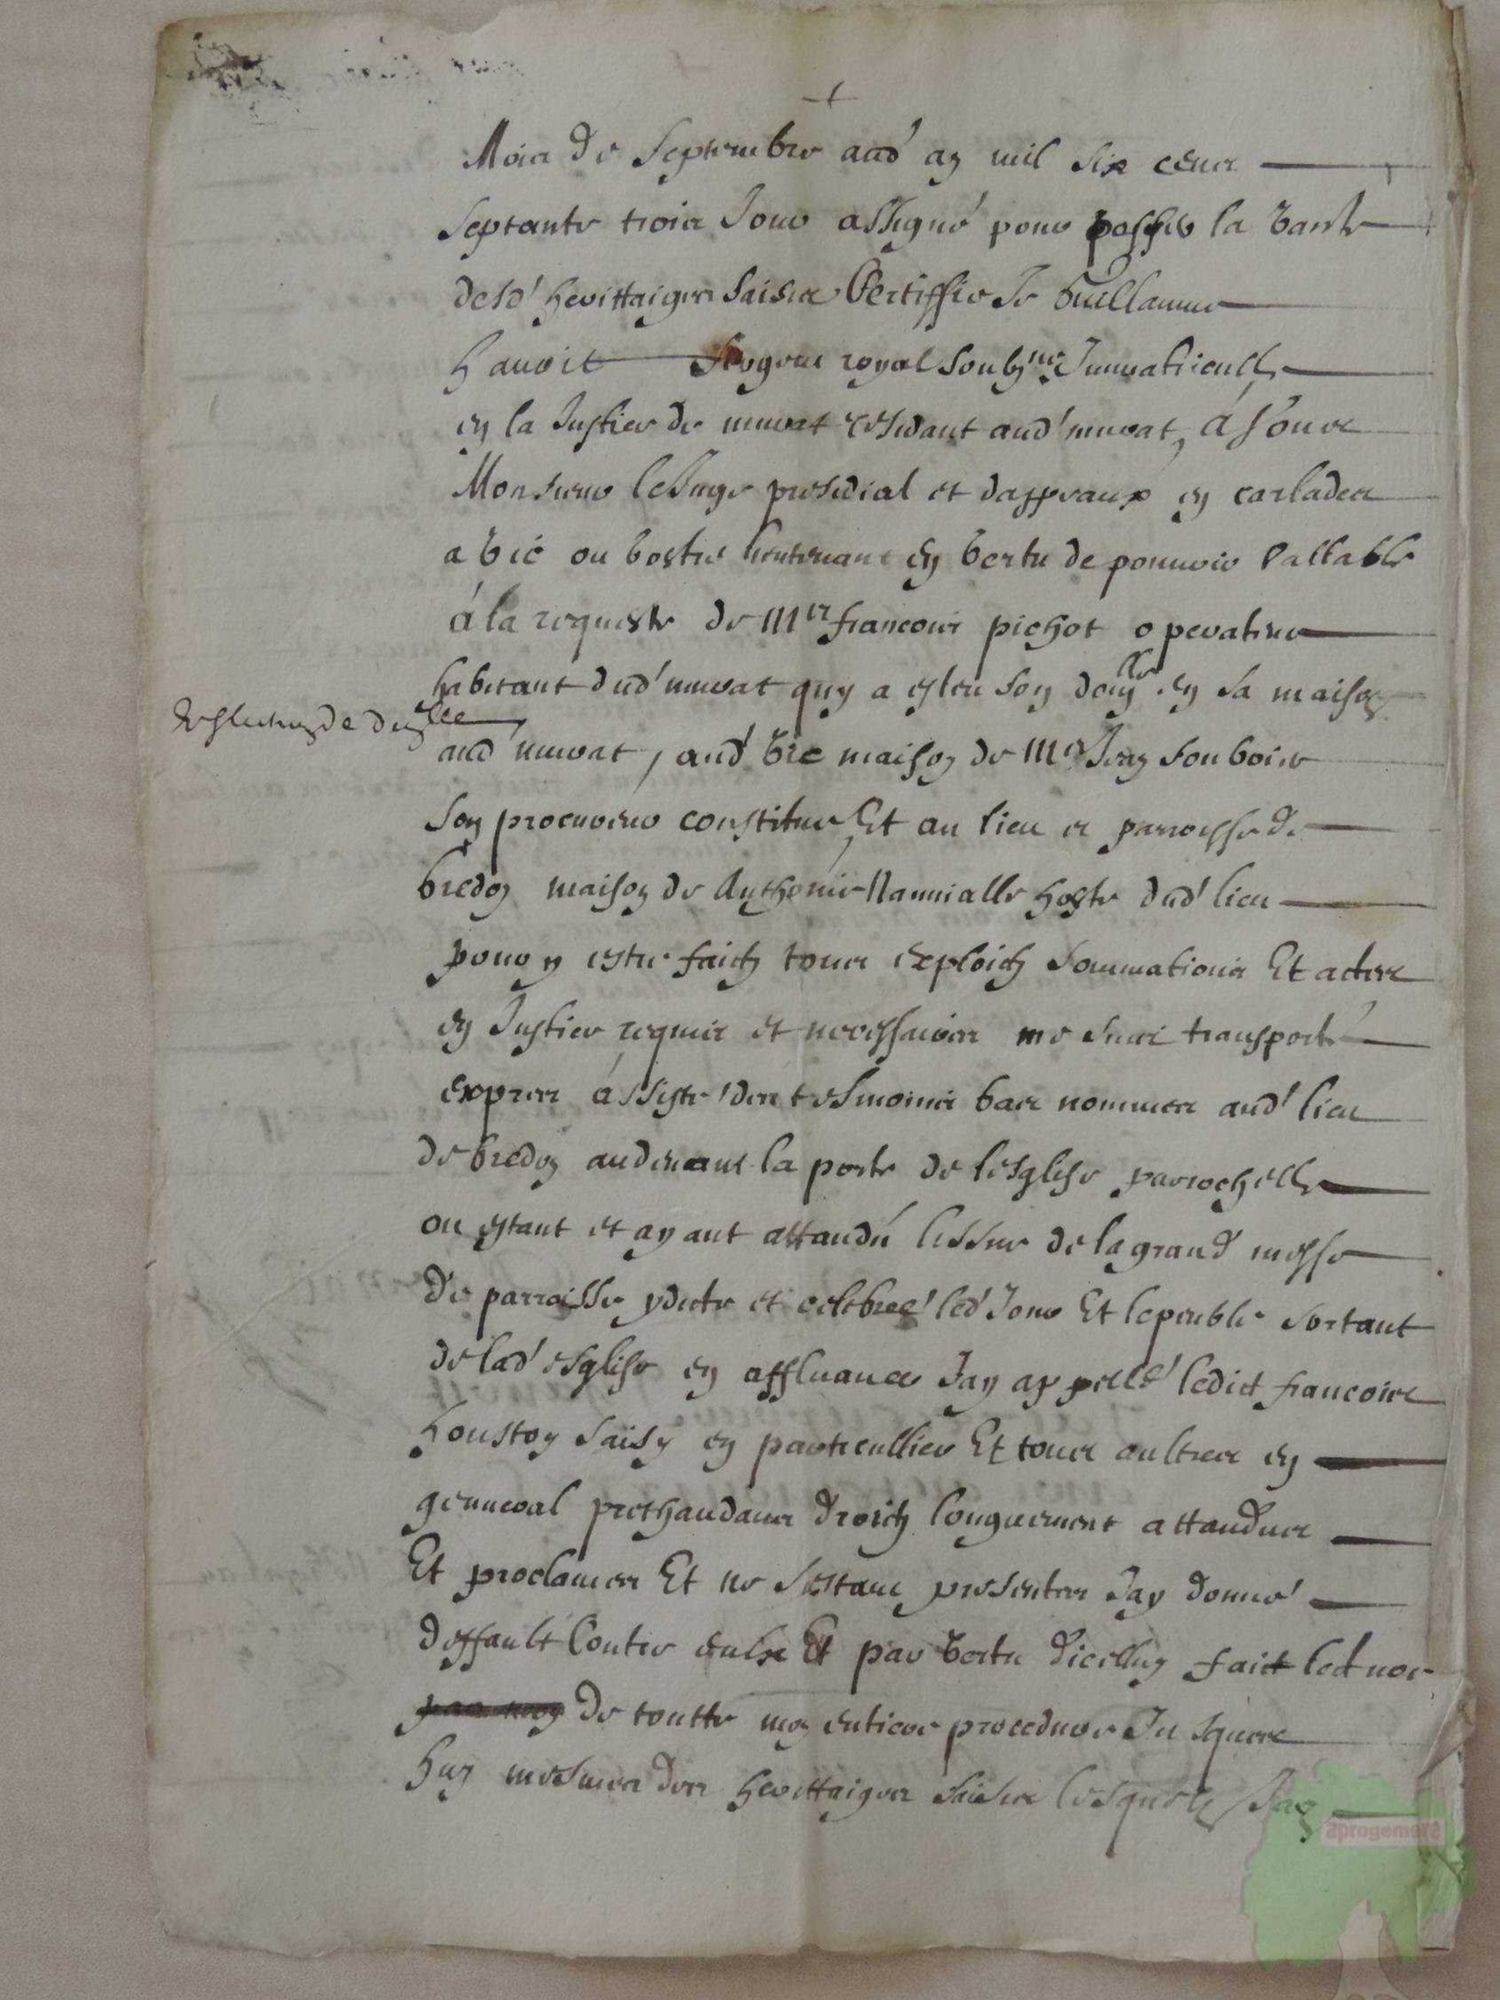 Mois de Septembre aud' an mil six cens
septante trois Jour assigné pour passer la vante
desd' herittaiges saisies Certiffie Je Guillaume
hanoit sergent royal soubz.ne Immatriculle
en la Justice de murat residant aud' murat, a vous
Monsieur le Juge presidial et dappeaux en carlades
a vic ou vostre lieutenant en vertu de pouvoir vallable
á la requeste de Mtr francois pichot operateur
habitant dud' murat quy a esleu son domlle en sa maison
Eslection de domlle
aud' murat, aud' vic maison de Me Jean souboire
son procureur constitue Et au lieu et parroisse de
bredon maison de Anthonie hoste dud' lieu
pour y estre faictz tous exploictz sommations Et actes
en Justice requis et necessaires me suis transporté
expres assiste des tesmoins bas nommes aud' lieu
de bredon audevant la porte de lesglise parrochelle
ou estant et ayant attandú lissue de la grand messe
de parroisse ydicte et celebree' led' Jour Et le peuble sortant
de lad' esglise en affluance Jay appellé ledict francois
houston saisy en particullier Et tous aultres en
genneral prethandans droictz longuement attandues
Et proclames Et ne sestant presentes Jay donné
deffault Contre eulx Et par vertu dicelluy faict lecture
de toutte mon entiere procedure Jusques
huy mesmes des herittaiges saisies lesquelz Jay
aprogemere